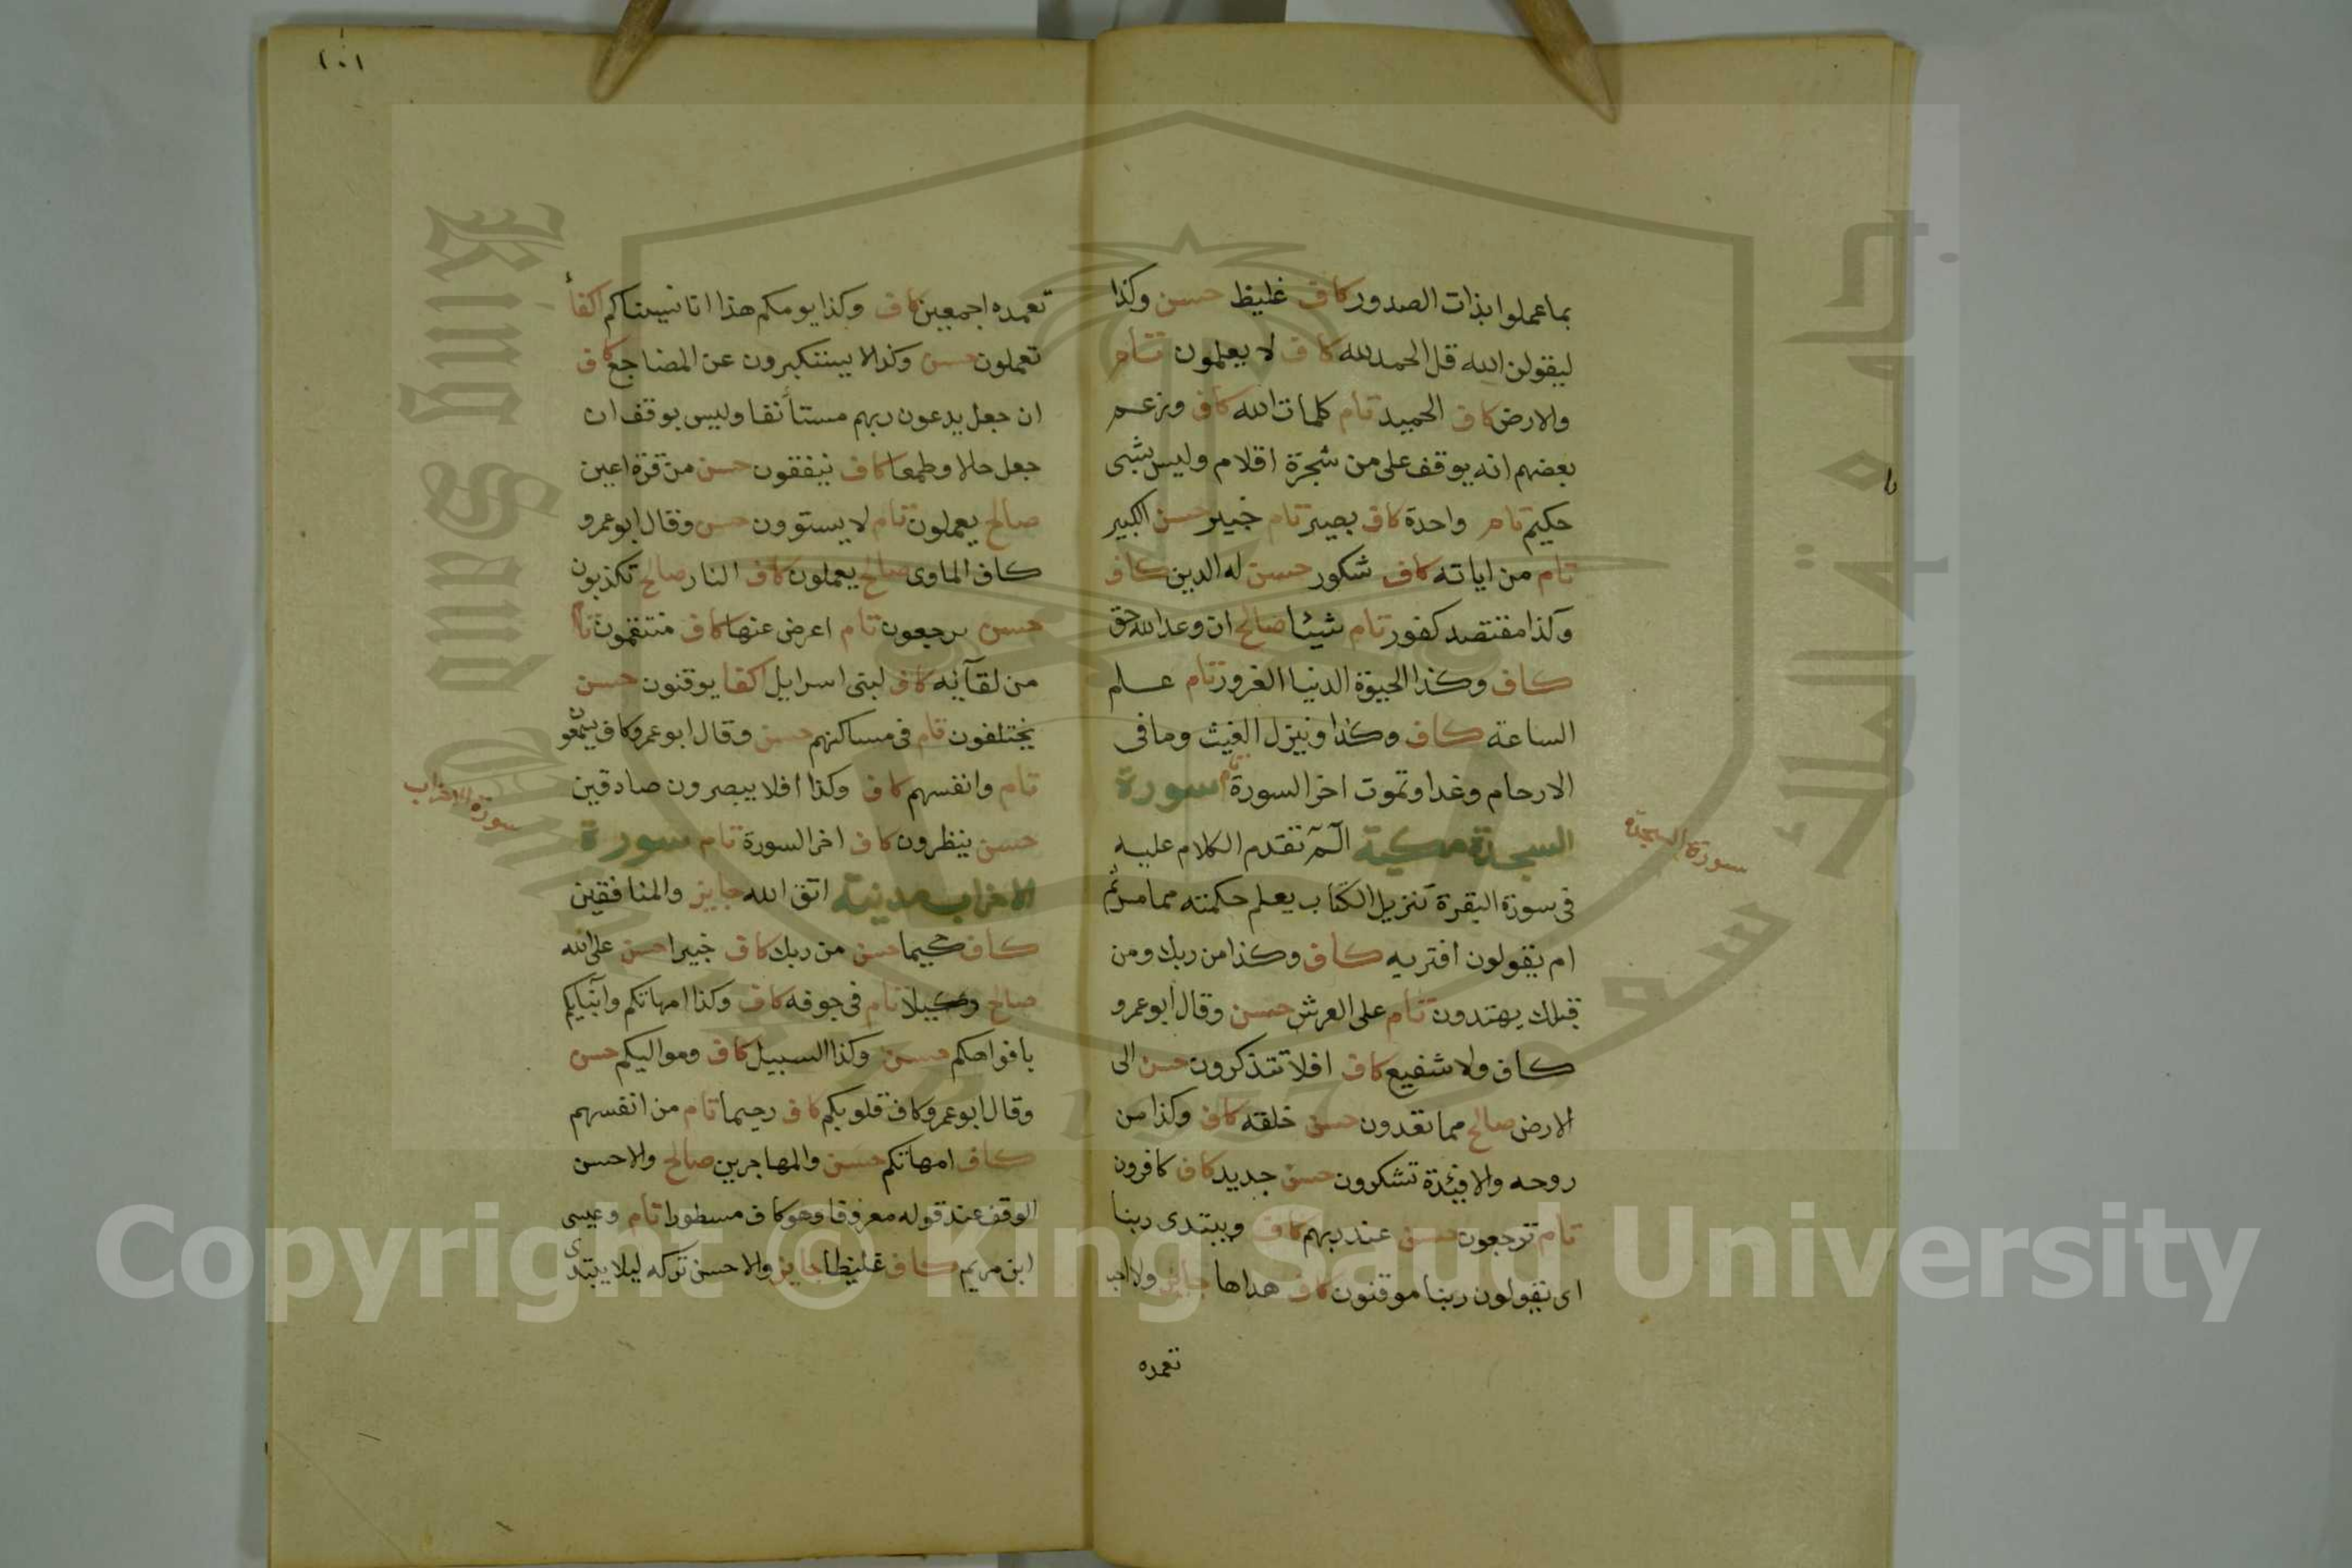 بما عملوا بذات الصدور كاف غليظ حسن وكذا
ليقولن الله قل الحمد لله كاف لا يعلمون تام
والارض كاف الحميد تام كلمات الله كاف وزعم
بعضهم انه يوقف على من شجرة اقلام وليس بشى
حكيم تام واحدة كاف بصير تام خبير حسن الكبير
تام من اياته كاف شكور حسن له الدين كاف
وكذا مقتصد كفور تام شيئا صالح ان وعد الله حق
كاف وكذا الحيوة الدنيا الغرور تام علم
الساعة كاف وكذا وينزل الغيث وما فى
الارحام وغدا وتموت اخر السورة تام سورة
السجدة مكية الٓمٓ تقدم الكلام عليه
فى سورة البقرة تنزيل الكتاب يعلم حكمته مما مر ثم
ام يقولون افتريه كاف وكذا من ربك ومن
قبلك يهتدون تام على العرش حسن وقال ابو عمرو
كاف ولا شفيع كاف افلا تتذكرون حسن الى
الارض صالح مما تعدون حسن خلقه كاف وكذا من
روحه والافئدة تشكرون حسن جديد كاف كافرون
تام ترجعون حسن عند ربهم كاف ويبتدى ربنا
اى يقولون ربنا موقنون كاف هداها جايز ولا احب
تعمده
سورة السجدة
١٠١
تعمده اجمعين كاف وكذا يومكم هذا انا نسيناكم اكفأ
تعملون حسن وكذا لا يستكبرون عن المضاجع كاف
ان جعل يدعون ربهم مستأنفا وليس بوقف ان
جعل حالا وطمعا كاف ينفقون حسن من قرة اعين
صالح يعملون تام لا يستوون حسن وقال ابو عمرو
كاف الماوى صالح يعملون كاف النار صالح تكذبون
حسن يرجعون تام اعرض عنها كاف منتقمون تام
من لقآئه كاف لبنى اسرايل اكفا يوقنون حسن
يختلفون تام فى مساكنهم حسن وقال ابو عمرو كاف يسمعون
تام وانفسهم كاف وكذا افلا يبصرون صادقين
حسن ينظرون كاف اخر السورة تام سورة
الاحزاب مدنية اتق الله جايز والمنافقين
كاف حكيما حسن من ربك كاف خبيرا حسن على الله
صالح وكيلا تام فى جوفه كاف وكذا امهاتكم وابنايكم
بافواهكم حسن وكذا السبيل كاف ومواليكم حسن
وقال ابو عمرو كاف قلوبكم كاف رحيما تام من انفسهم
كاف امهاتكم حسن والمهاجرين صالح والاحسن
الوقف عند قوله معروفا وهو كاف مسطورا تام وعيسى
ابن مريم كاف غليظا جايز والاحسن تركه ليلا يبتدى
سورة الاحزاب
Copyright © King Saud University
King Saud
جامعة الملك سعود
1957